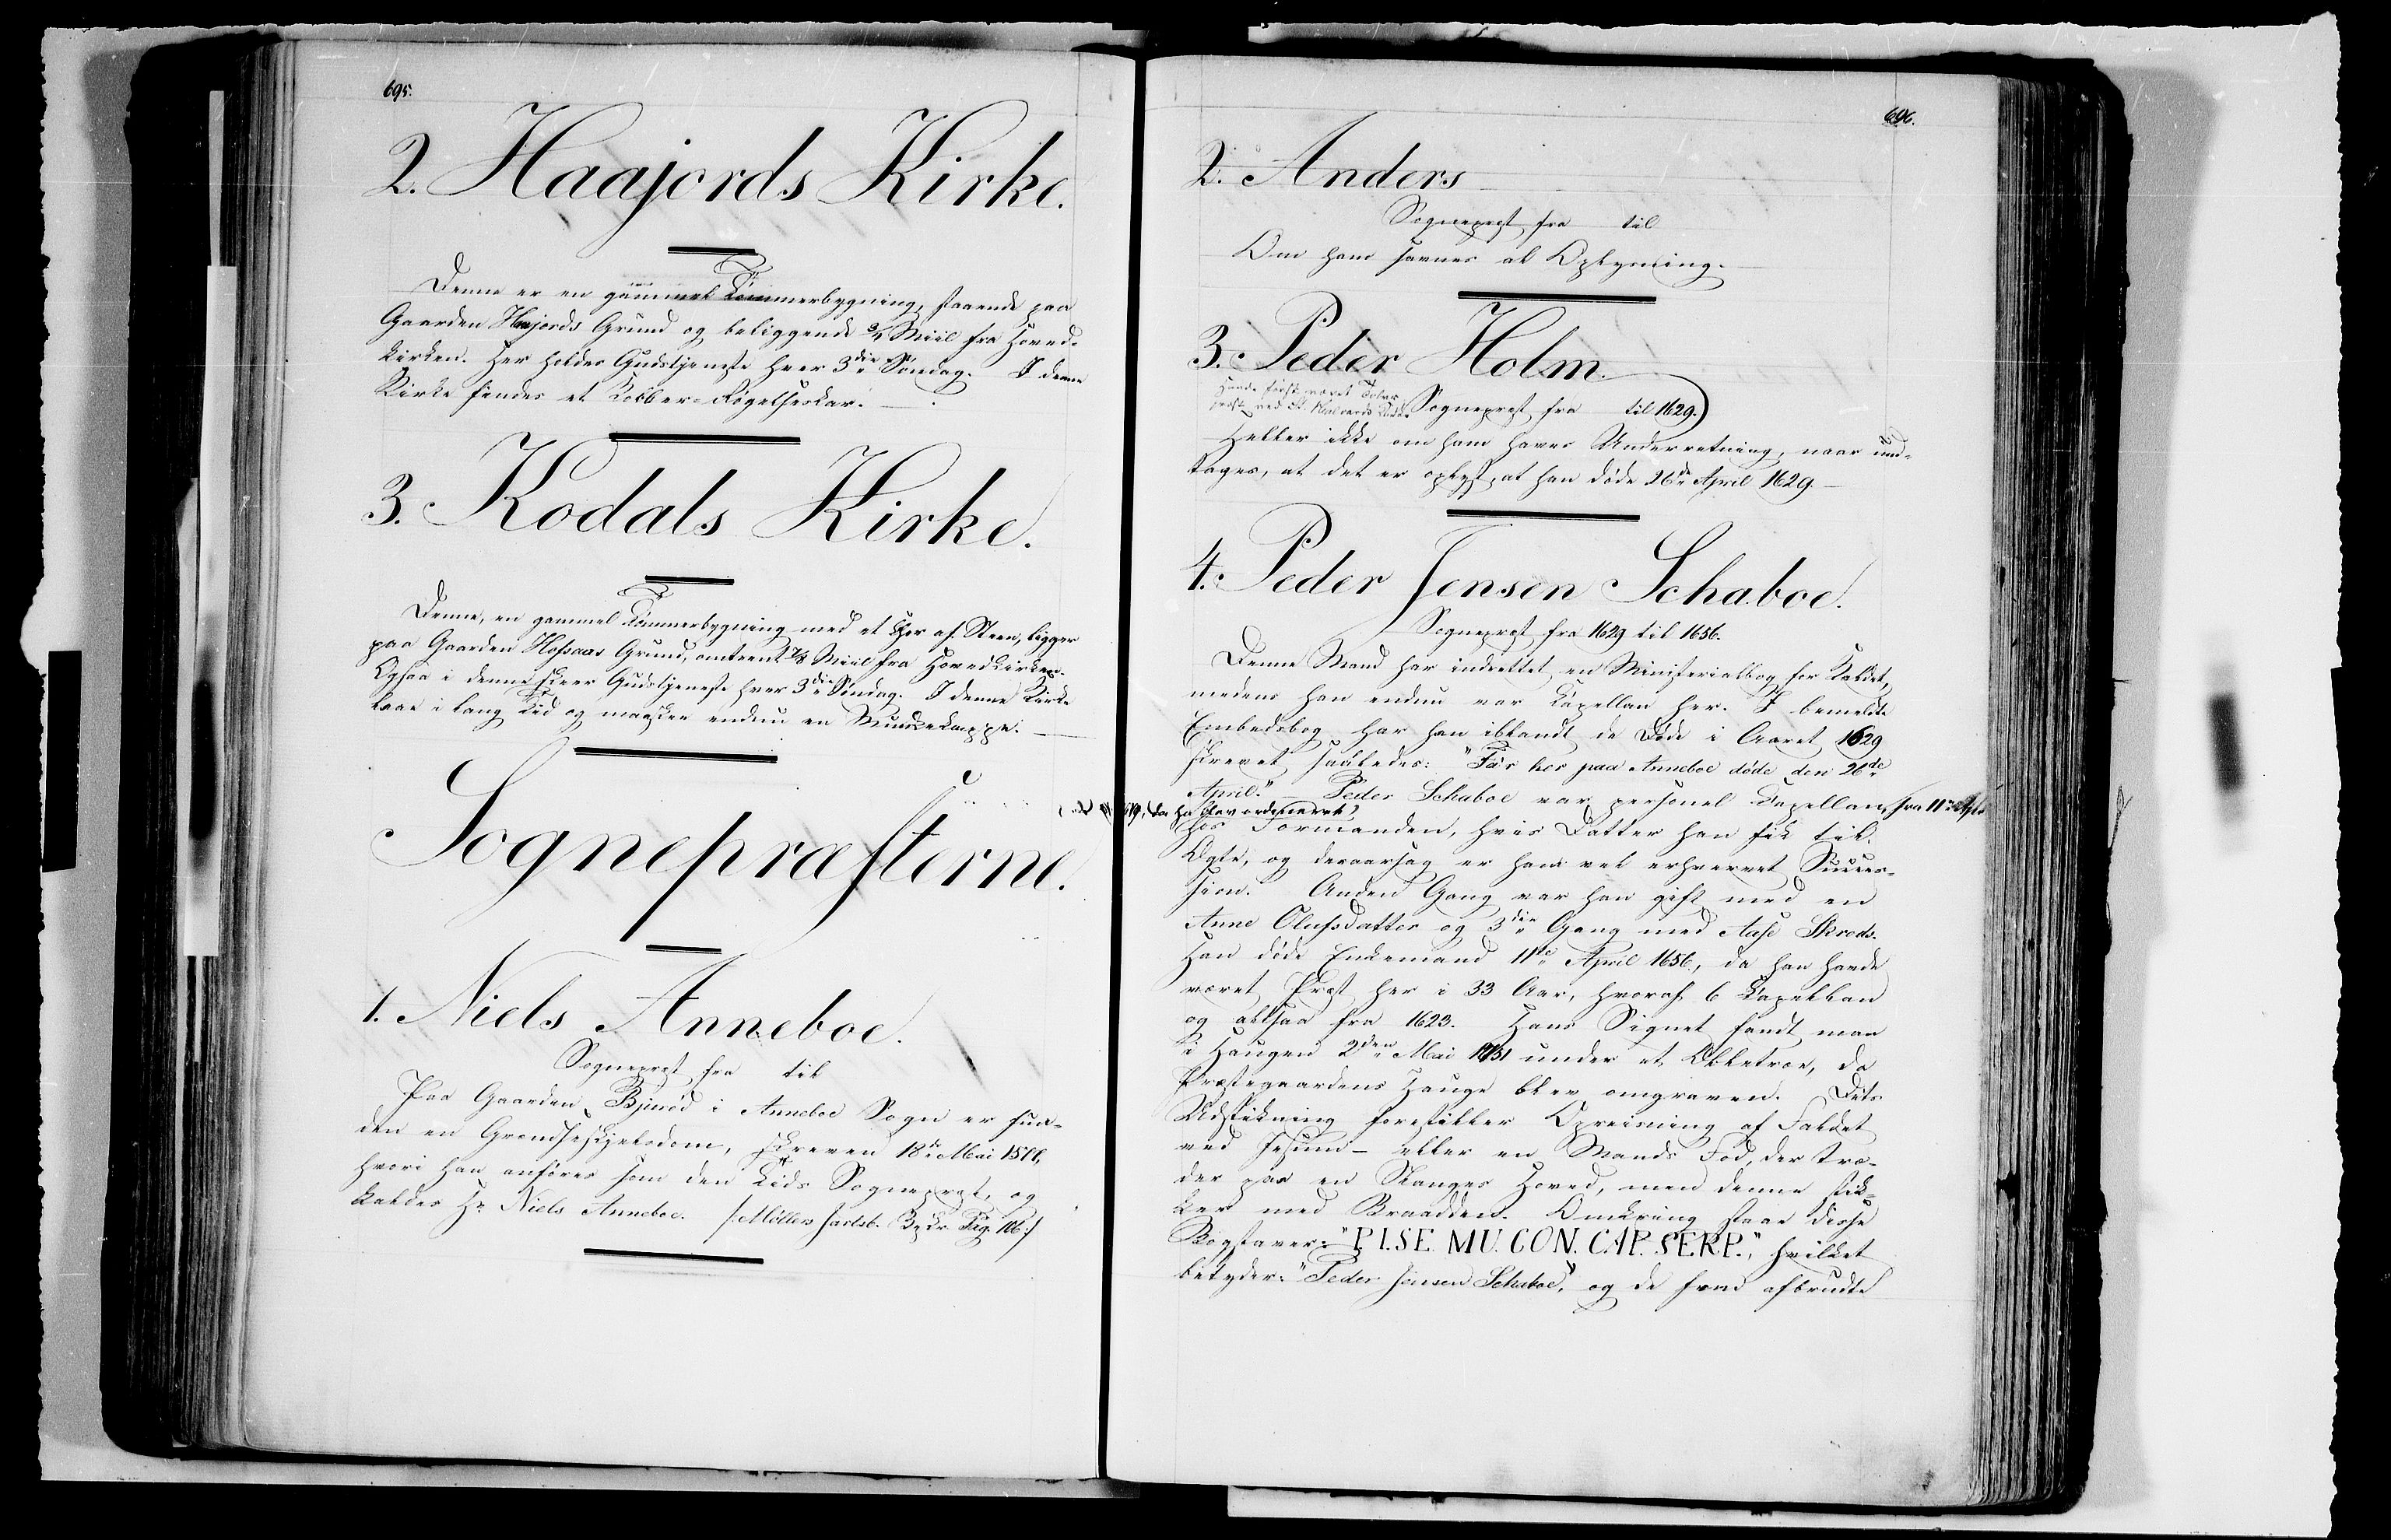 695.
2. Haajords Kirke.
Denne er en gammel Tømmerbygning, staaende paa
Gaarden Haajords Grund og beliggende 3/4 Miil fra Hoved-
kirken. Her holdes Gudstjeneste hver 3die Søndag. I denne
Kirke findes et Kobber-Røgelseskar.
3. Kodals Kirke.
Denne, en gammel Tømmerbygning med et Chor af Steen, ligger
paa Gaarden Hofsaas Grund, omtrent 7/8 Miil fra Hovedkirken.
Ogsaa i denne skeer Gudstjeneste hver 3die Søndag. I denne Kirke
laae i lang Tid og maaskee endnu en Munkekappe.
Sognepræsterne.
1. Niels Anneboe.
Sogneprest fra til
Paa Gaarden Bjuerød i Anneboe Sogn er fun-
den en Grændseskjelsdom, skreven 18de Mai
hvori han anføres som den Tids Sogneprest, og
kaldes Hr Niels Anneboe. /: Møllers Jarlsb. Beskr. Pag. 106 :/
696.
2. Anders
Sogneprest fra til
Om ham savnes al Oplysning.
3. Peder Holm.
Havde først været
prest ved St. Halvards Kirke
Sogneprest fra til 1629.)
Heller ikke om ham haves Underretning, naar und-
tages, at det er oplyst, at han døde 26de April 1629.
4. Peder Jensen Schaboe.
Sogneprest fra 1629 til 1656.
Denne Mand har indrettet en Ministerialbog for Kaldet,
medens han endnu var Capellan her. I bemeldte
Embedsbog har han iblandt de Døde i Aaret 1629
skrevet saaledes: "Fa'r her paa Anneboe døde den 26de
April." – Peder Schaboe var personel Capellan, fra 11te April
da han blev ordineret?
hos Formanden, hvis Datter han fik til
Ægte, og deraarsag er ham vel erhvervet Succes-
sion. Anden Gang var han gift med en
Anne Olufsdatter og 3die Gang med Aase Skreds.
Han døde Enkemand 11te April 1656, da han havde
været Prest her i 33 Aar, hvoraf 6 Capellan
og altsaa fra 1623. Hans Signet fandt man
i Haugen 2den Mai 1751 under et Æbletræe, da
Præstegaardens Hauge blev omgraven. Dets
Udstikning forestiller Opreisning af Faldet
ved Jesum – eller en Mands Fod, der træ-
der paa en Slanges Hoved, men denne stik-
ker med Braadden. Omkring staae disse
Bogstaver: "P.I.SE. MU. CON. CAP. SERP.", hvilket
betyder: "Peder Jensen Schaboe", og de fem afbrudte